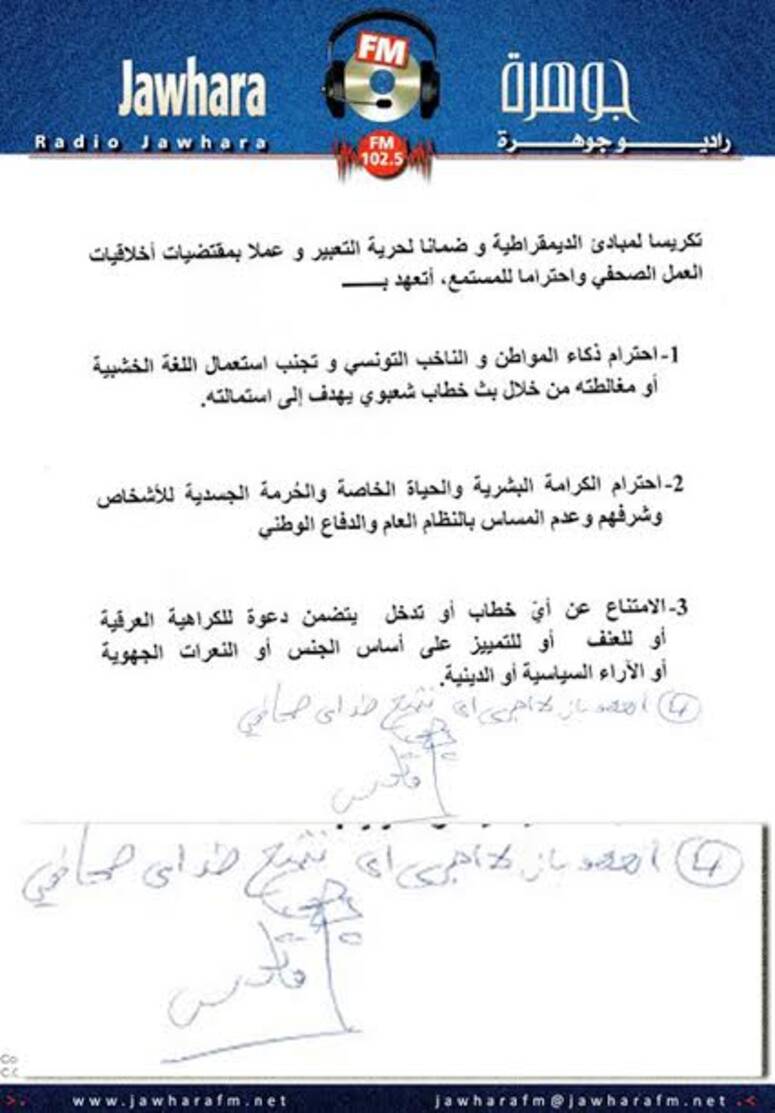 Jawhara
FM
جوهرة
Radio Jawhara
FM
102.5
راديـــو جوهـــرة
تكريسا لمبادئ الديمقراطية و ضمانا لحرية التعبير و عملا بمقتضيات أخلاقيات
العمل الصحفي واحتراما للمستمع، أتعهد بـــــ
1-احترام ذكاء المواطن و الناخب التونسي و تجنب استعمال اللغة الخشبية
أو مغالطته من خلال بث خطاب شعبوي يهدف إلى استمالته.
2-احترام الكرامة البشرية والحياة الخاصة والحُرمة الجسدية للأشخاص
وشرفهم وعدم المساس بالنظام العام والدفاع الوطني
3-الامتناع عن أيّ خطاب أو تدخل يتضمن دعوة للكراهية العرقية
أو للعنف أو للتمييز على أساس الجنس أو النعرات الجهوية
أو الآراء السياسية أو الدينية.
4 اتعهد بان لا اجري اي تتبع ضد اي صحافي
4 اتعهد بان لا اجري اي تتبع ضد اي صحافي
www.jawharafm.net
jawharafm@jawharafm.net